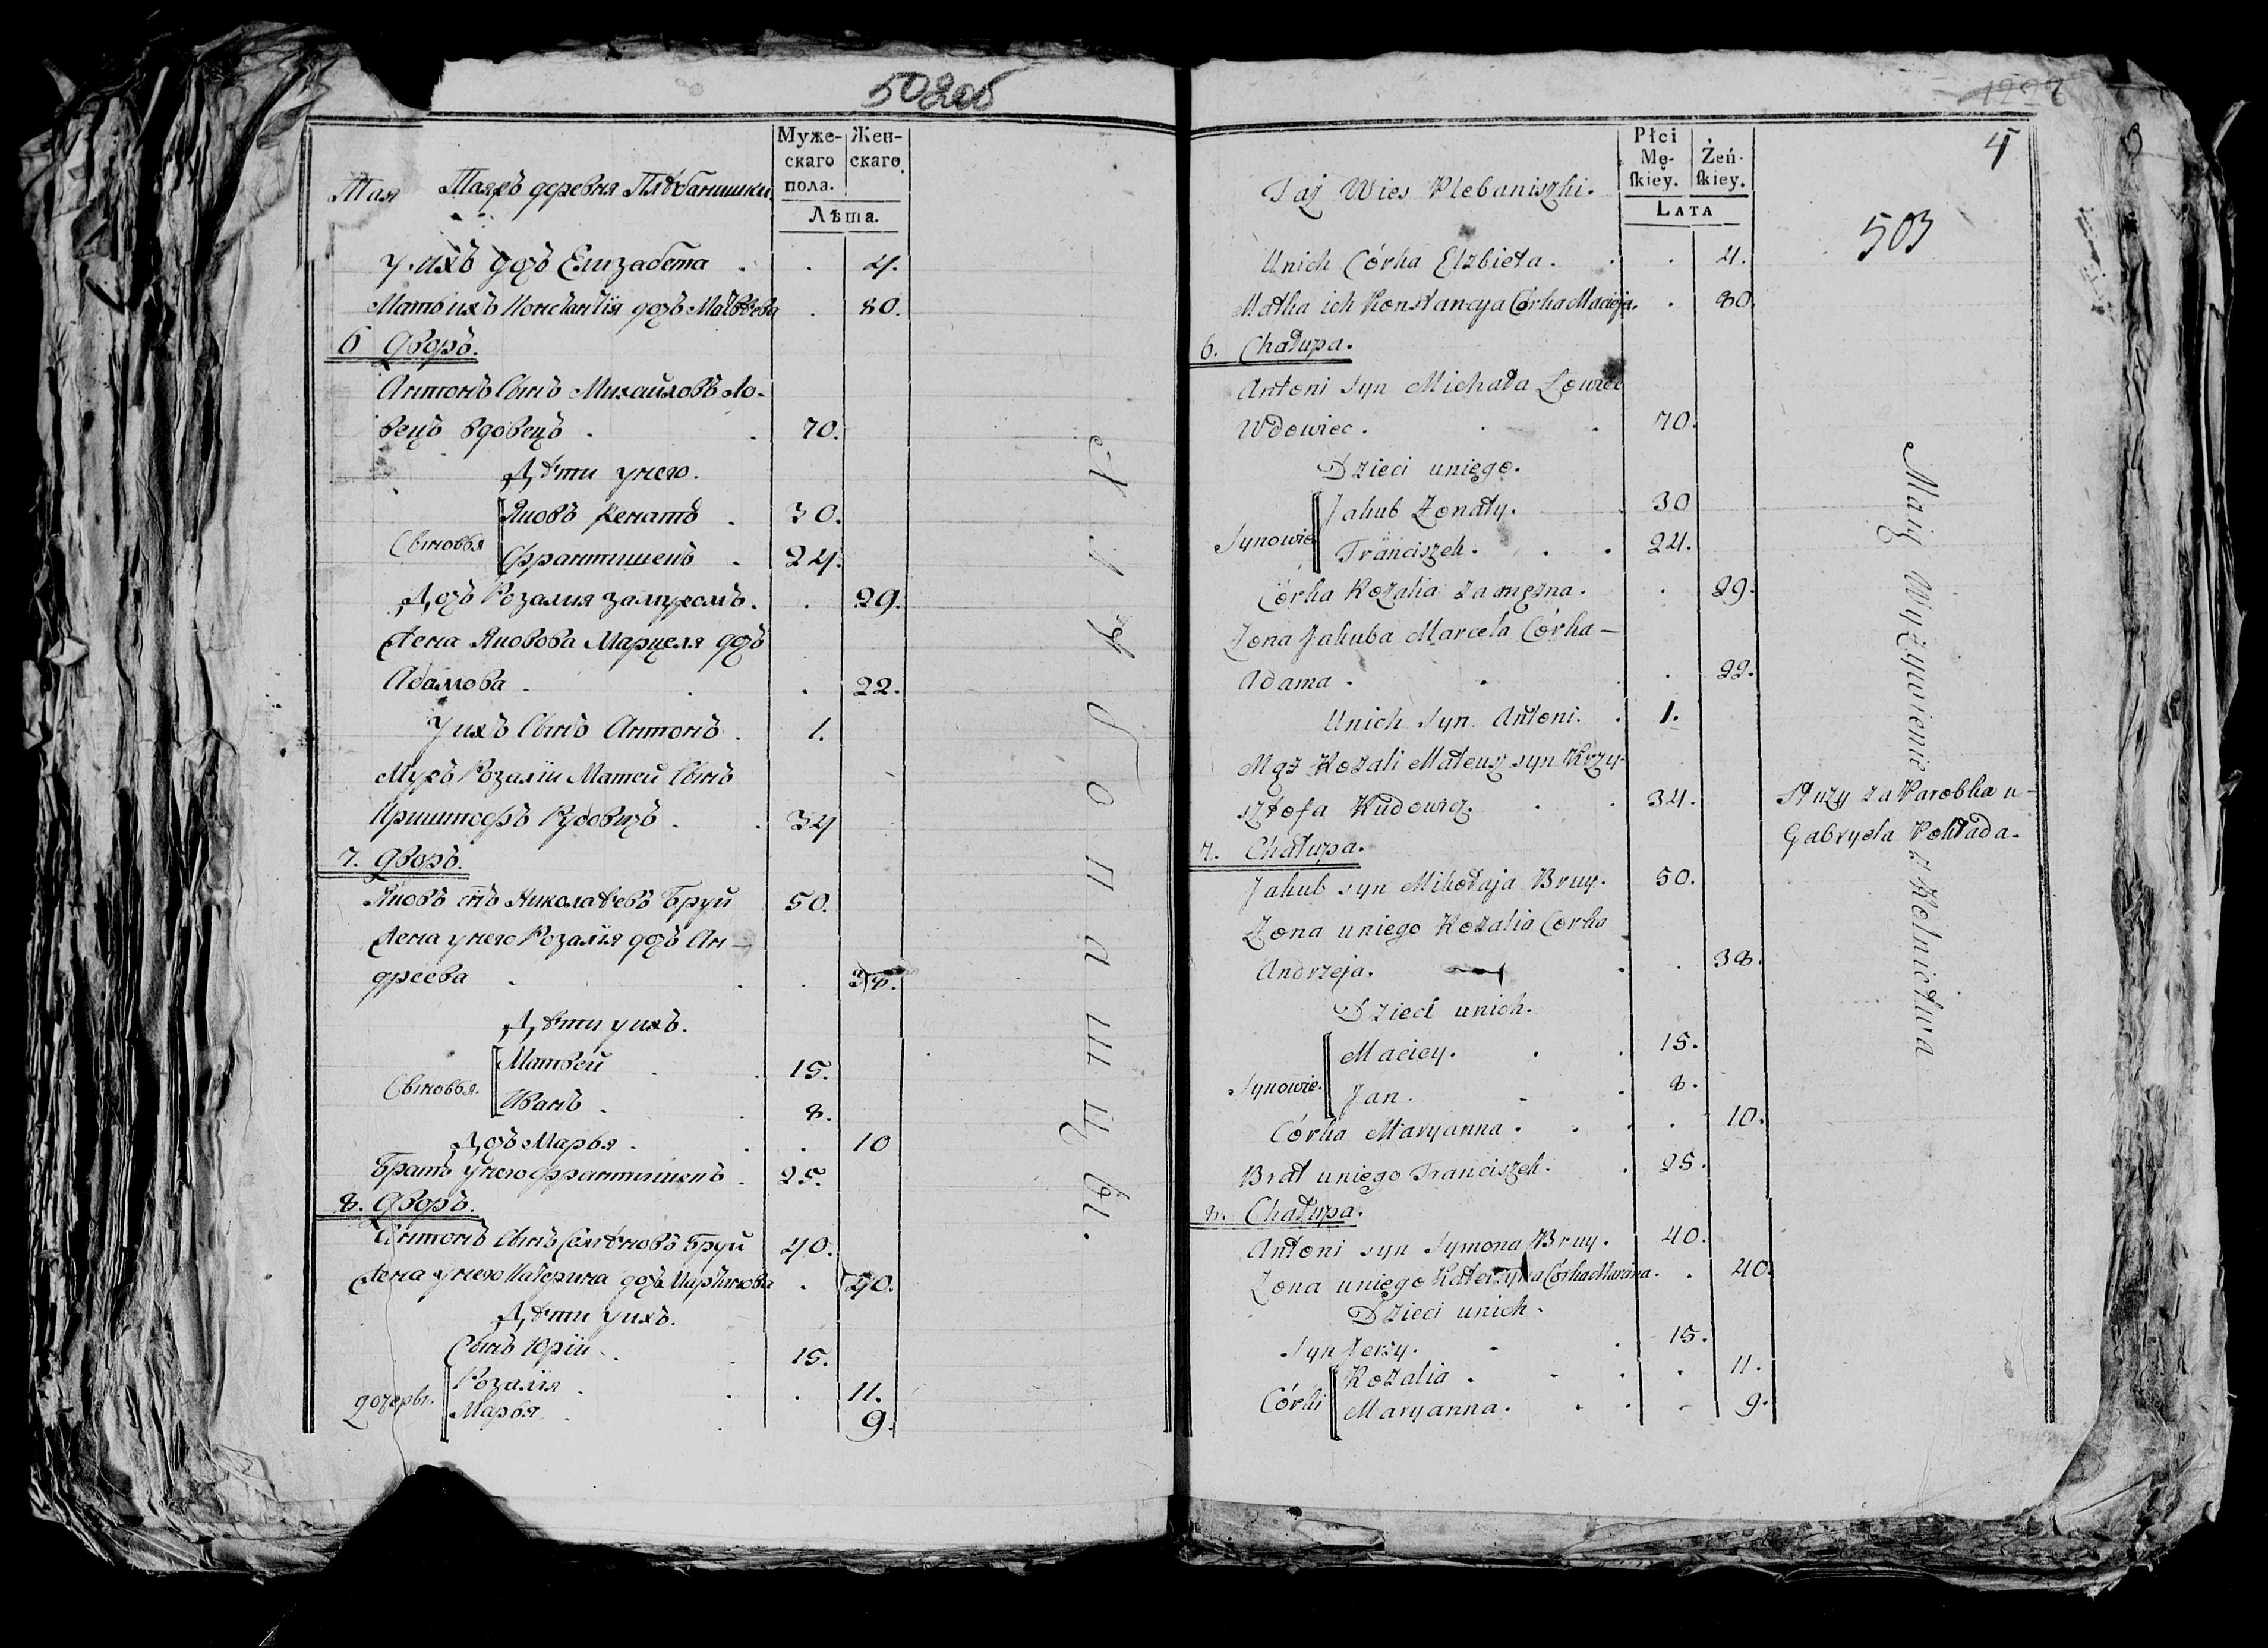 502об
Муже-
скаго
пола.
Жен-
скаго
Лѣта.
Тая Таяжъ деревня Плѣбанишки
У ихъ дочь Елизабета . . 4.
Мать ихъ Констанція дочь Матвѣева . 80.
6 Дворъ.
Антонъ Сынъ Михайловъ Ло-
вецъ вдовецъ . . 70.
Дѣти у него.
Сыновья
Яковъ женатъ . 30.
Францишекъ . 24.
Дочь Розалия замужомъ . . 29.
Жена Яковова Марцеля дочь
Адамова . . . 22.
У ихъ Сынъ Антонъ . 1.
Мужъ Розаліи Матей Сынъ
Криштофъ Кудовичъ . . 34
7. Дворъ.
Яковъ снъ Николаѣевъ Бруй 50.
Жена у него Розалія дочь Ан-
дреева . . . 38.
Дѣти у ихъ.
Сыновья.
Матвей . . 15.
Иванъ . . 8.
Дочь Марья . . . 10
Братъ у него Францишекъ . 25.
8. Дворъ.
Антонъ Сынъ Семѣновъ Бруй 40.
Жена у него Катерина дочь Мартинова . 40.
Дѣти у ихъ.
Сынъ Юрій . . 15.
дочеры.
Розалія . . . 11.
Марья . . 9.
1228
4
503
Płci
Mę-
skiey.
Żeń-
skiey.
LATA
Taż Wies Plebaniszki.
Unich Córka Elzbieta . . . 4.
Matka ich Konstancya Córka Macieja . . 80
6. Chałupa.
Antoni syn Michała Łowiec
Wdowiec . . . 70.
Dzieci uniego.
Synowie
Jakub Żonaty . . 30
Franciszek . . . 24.
Córka Rozalia zamężna . . 29.
Żona Jakuba Marcela Córka —
Adama . . . . 22.
Unich syn Antoni . . 1.
Mąż Rozali Mateusz syn Krzy-
sztofa Kudowicz . . 34.
Służy za Parobka u
Gabryela Pokłada.
7. Chałupa.
Jakub syn Mikołaja Bruy. 50.
Żona uniego Rozalia Corka
Andrzeja . . . 38.
Dzieci unich.
Synowie.
Maciey . . . 15.
Jan . . . 8.
Córka Maryanna . . . . 10.
Brat uniego Franciszek . . 25.
8. Chałupa.
Antoni syn Symona Bruy. 40.
Żona uniego Katerzyna Córka Marcina . . 40.
Dzieci unich .
Syn Jerzy . . . 15.
Córki
Rozalia . . . . 11.
Maryanna . . . . 9.
Maią Wyżywienie z Rolnictwa